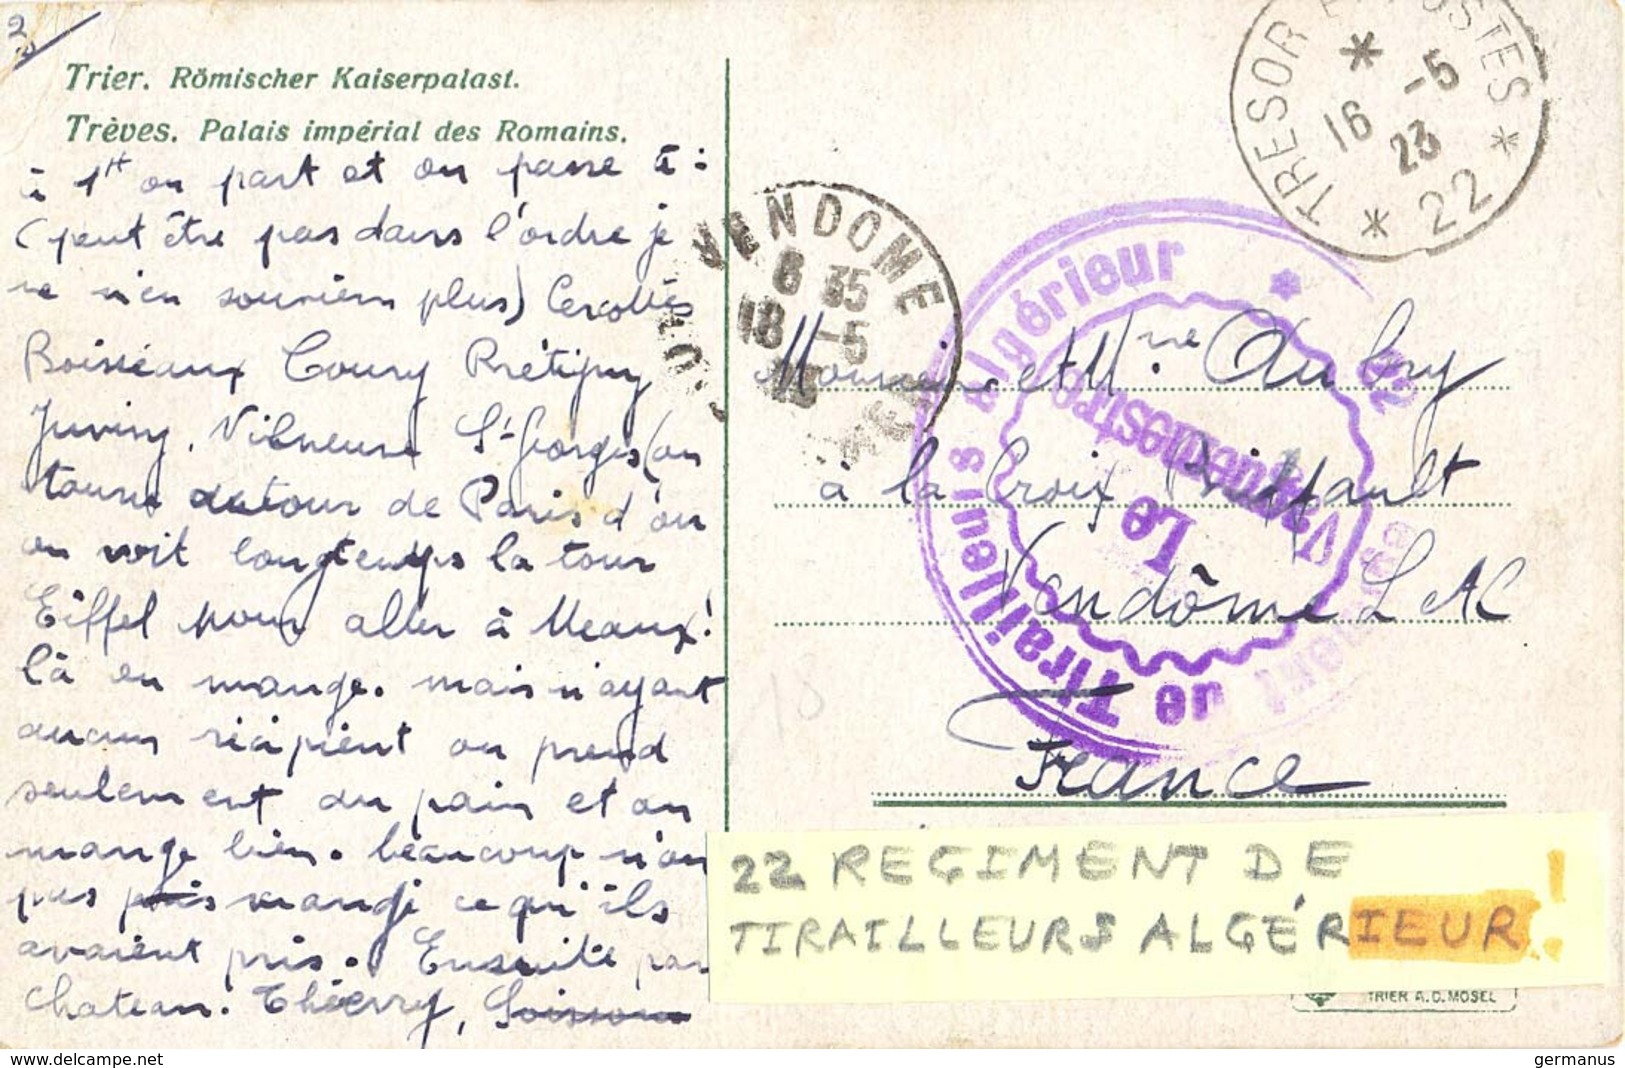 2
Trier. Römischer Kaiserpalast.
Trèves. Palais impérial des Romains.
à 1H on part et on passe à :
(peut être pas dans l'ordre je
ne m'en souviens plus) Cercottes
Boisseaux Toury Brétigny
Juvisy, Villneuve St Georges (on
tourne autour de Paris d'où
on voit longtemps la tour
Eiffel pour aller à Meaux!
là on mange. mais n'ayant
aucun récipient on prend
seulement du pain et on
mange bien. beaucoup n'ont
pas mangé ce qu'ils
avaient pris. Ensuite par
Chateau. Thierry,
TRESOR ET POSTES
16 -5
23
* 22 *
VENDOME
6 35
18 -5
de Tirailleurs Algérieur *
Le
Vaguemestre
22
Monsieur et Mme Aubry
à la Croix Briffault
Vendôme L et C
France
22 REGIMENT DE
TIRAILLEURS ALGÉRIEUR!
TRIER A.D. MOSEL
www.delcampe.net
germanus